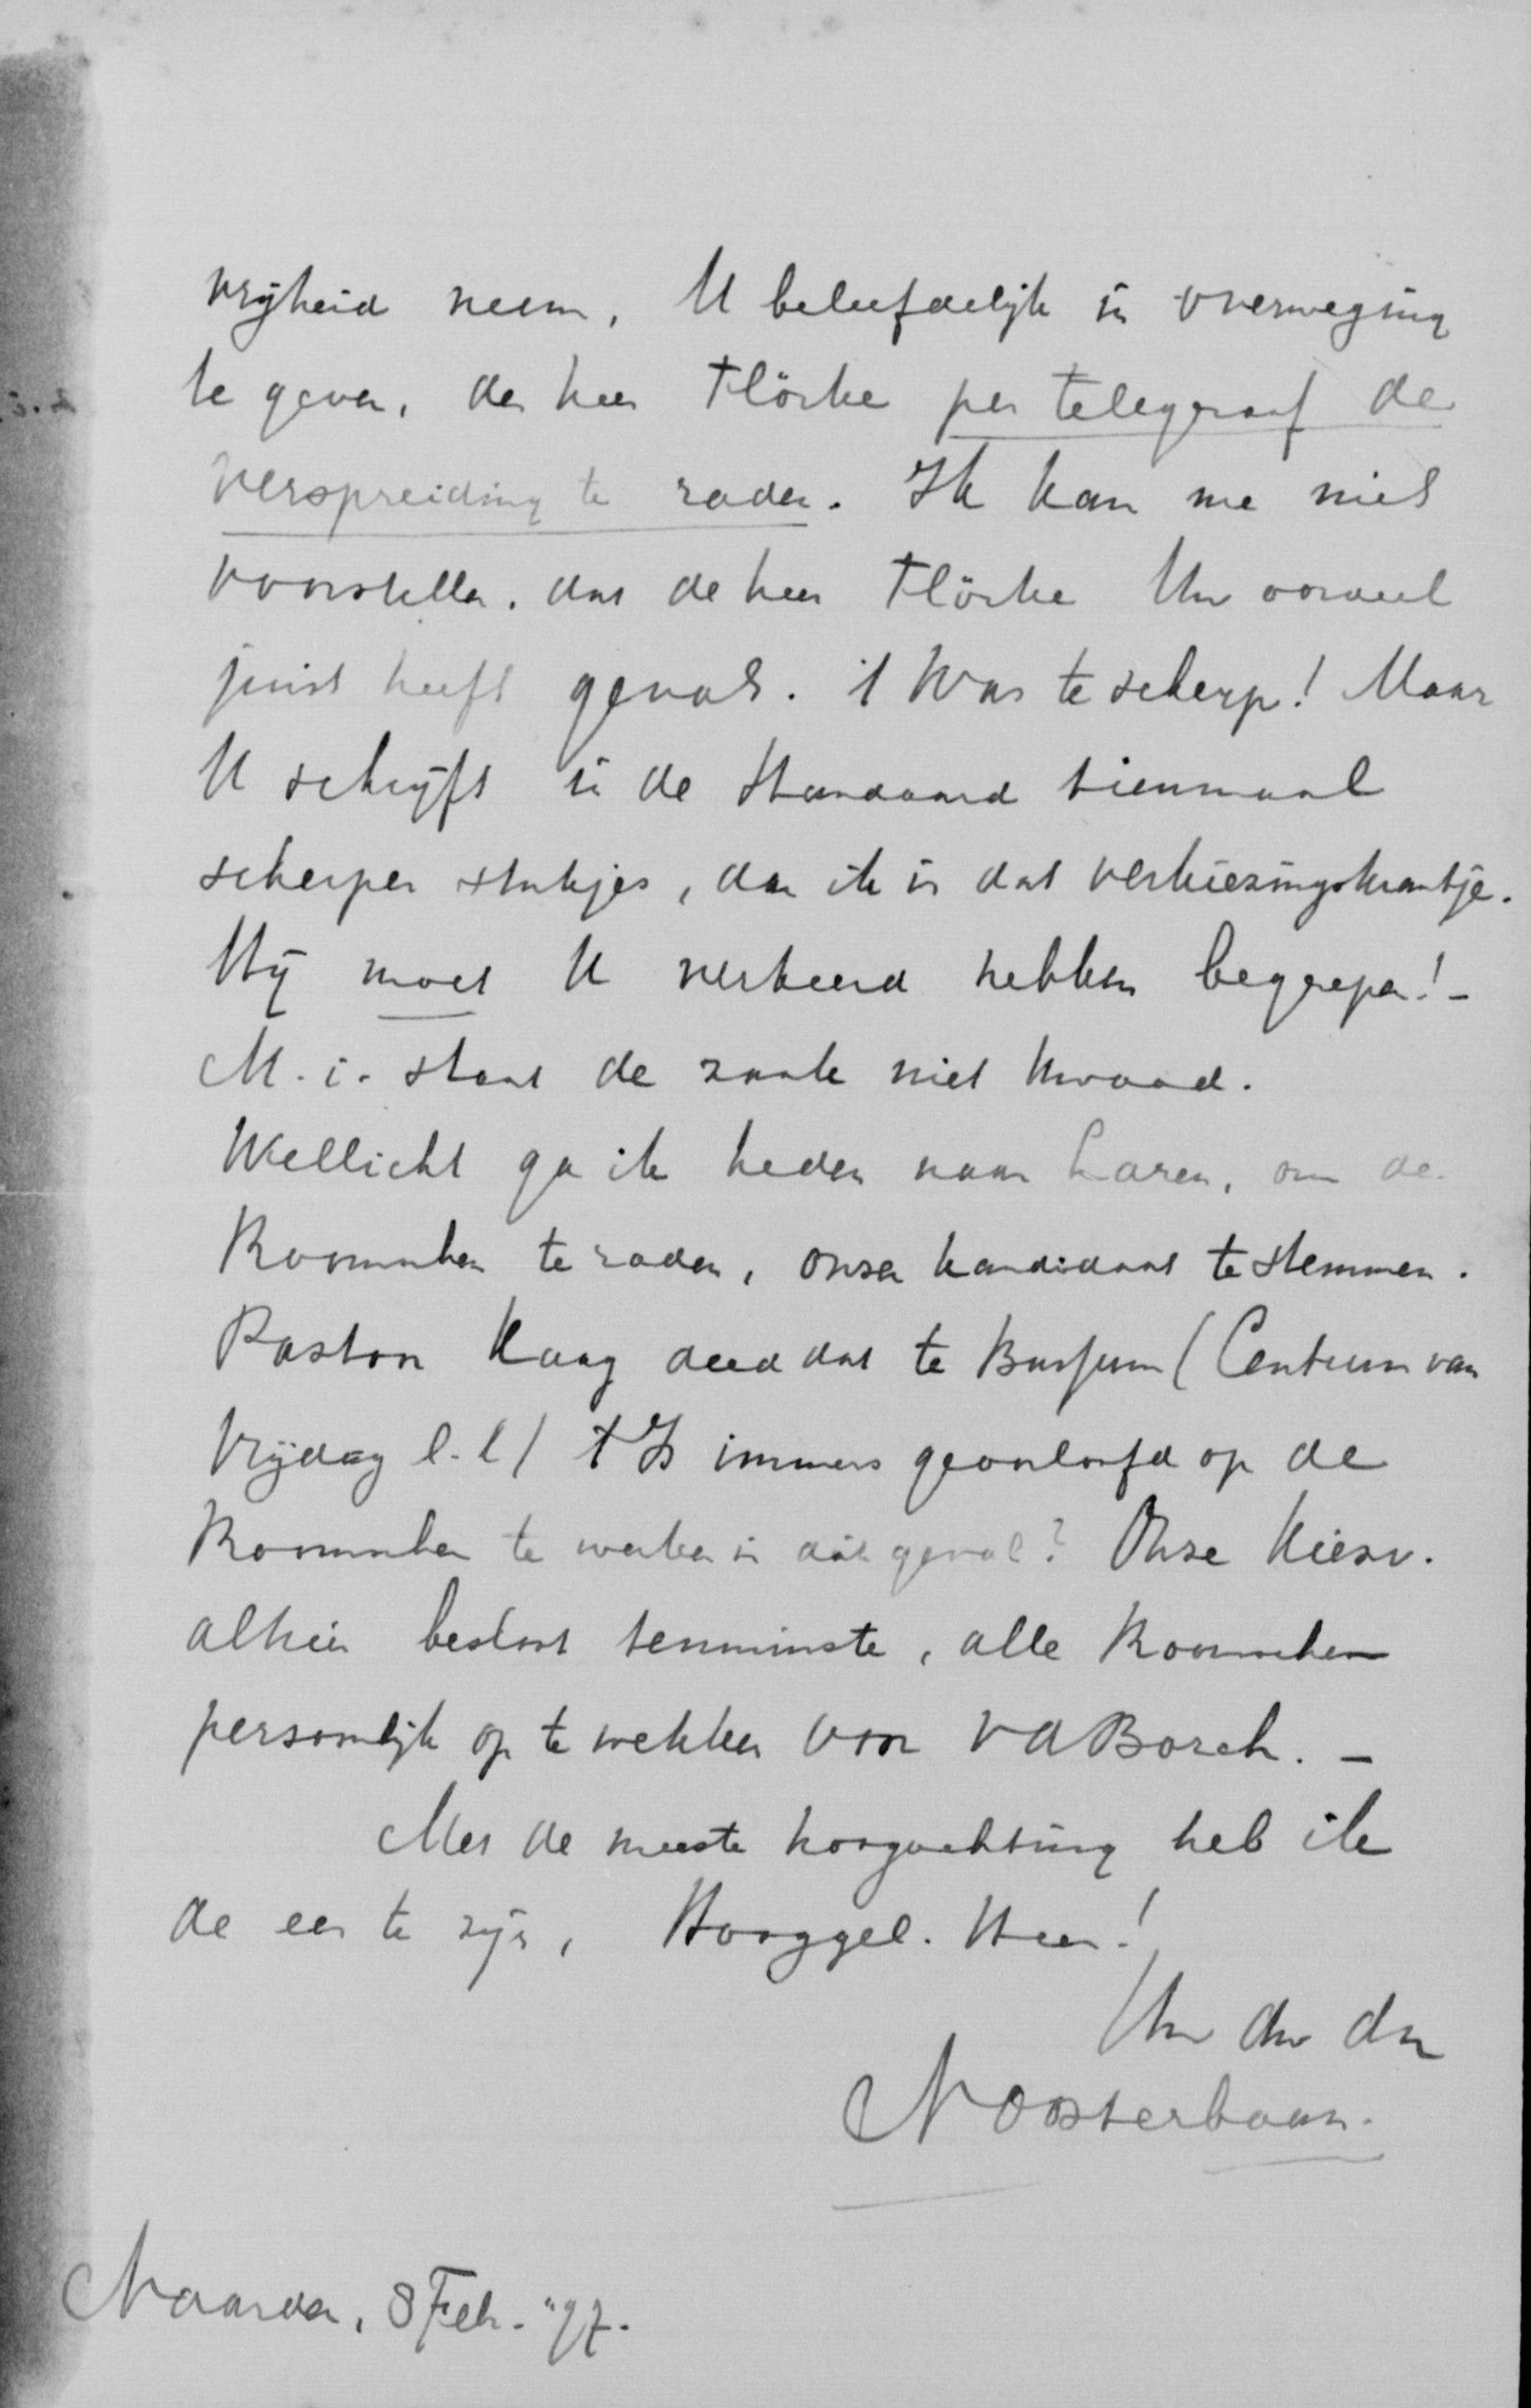 vrijheid neem, U beleefdelijk in overweging
te geven, den heer Flörke per telegraaf de
verspreiding te raden. Ik kan me niet
voorstellen, dat de heer Flörke Uw oordeel
juist heeft gevat. 't Was te scherp! Maar
U schrijft in de Standaard tienmaal
scherper stukjes, dan ik in dat verkiezingskrantje.
Hij moet U verkeerd hebben begrepen! -
M. i. staat de zaak niet kwaad.
Wellicht ga ik heden naar Laren, om de
Roomschen te raden, onzen kandidaat te stemmen.
Pastoor Kaag deed dat te Bussum (Centrum van
Vrijdag l.l.) 't Is immers geoorloofd op de
Roomschen te werken in dit geval? Onze Kiesv.
alhier besloot tenminste, alle Roomschen
persoonlijk op te wekken voor vd Borch. -
Met de meeste hoogachting heb ik
de eer te zijn, Hooggel. Heer!
Uw dw dn
N Oosterbaan.
Naarden, 8 Feb. "97.